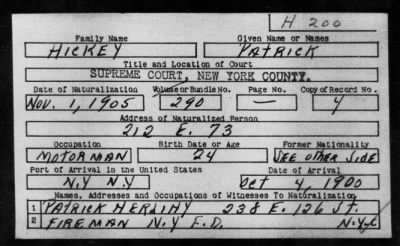 H 200
Family Name Given Name or Names
HICKEY PATRICK
Title and Location of Court
SUPREME COURT, NEW YORK COUNTY.
Date of Naturalization Volume or Bundle No. Page No. Copy of Record No.
Nov. 1, 1905 290 — 4
Address of Naturalized Person
212 E. 73
Occupation Birth Date or Age Former Nationality
MOTORMAN 24 SEE OTHER SIDE
Port of Arrival in the United States Date of Arrival
N.Y N.Y Oct 4, 1900
Names, Addresses and Occupations of Witnesses To Naturalization
1 PATRICK HERLIHY 238 E. 126 ST.
2 FIREMAN N.Y F.D. N.Y.C